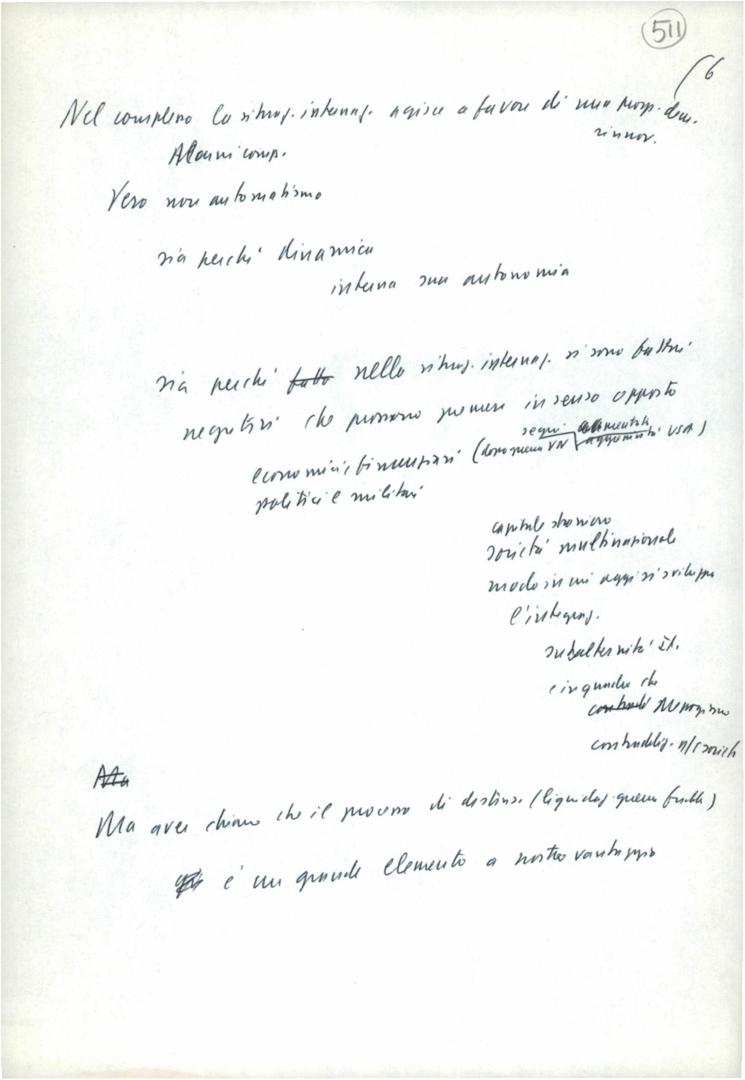 511
6
Nel complesso la situaz. internaz. agisce a favore di una prosp. dem.
rinnov.
Alcuni comp.
Vero non automatismo
sia perché dinamica
interna sua autonomia
sia perché fatto nella situaz. internaz. vi sono fattori
negativi che possono premere in senso opposto
segui
economici, finanziari (dopo guerra VN aggressività USA)
politici e militari
capitale straniero
società multinazionale
modo in cui oggi si sviluppa
l'integraz.
subalternità it.
e in quadro che
Ma
Ma aver chiaro che il processo di distens. (liquidaz. guerra fredda)
è un grande elemento a nostro vantaggio